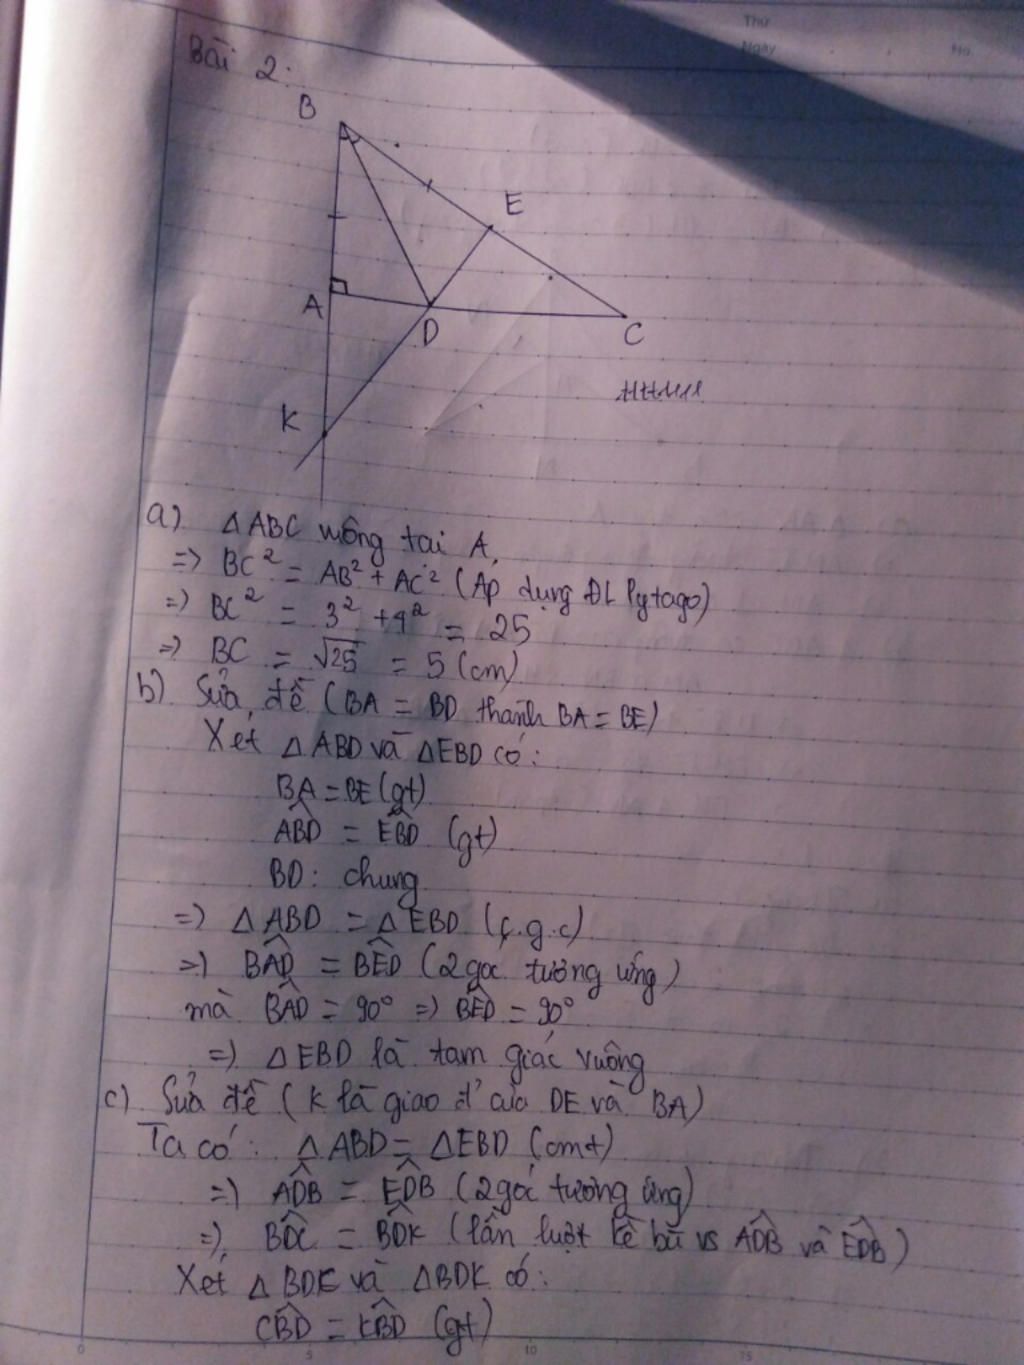 Thứ
Ngày No.
Bài 2:
B
E
A
D
C
K
a) △ABC vuông tại A
=> BC² = AB² + AC² (Áp dụng ĐL Pytago)
=> BC² = 3² + 4² = 25
=> BC = √25 = 5 (cm)
b) Sửa đề (BA = BD thành BA = BE)
Xét △ABD và △EBD có:
BA = BE (gt)
ABD̂ = EBD̂ (gt)
BD: chung
=> △ABD = △EBD (c.g.c)
=> BAD̂ = BED̂ (2 góc tương ứng)
mà BAD̂ = 90° => BED̂ = 90°
=> △EBD là tam giác vuông
c) Sửa đề (K là giao đ' của DE và BA)
Ta có: △ABD = △EBD (cmt)
=> ADB̂ = EDB̂ (2 góc tương ứng)
=> BDĈ = BDK̂ (lần lượt kề bù vs ADB̂ và EDB̂)
Xét △BDK và △BDK có:
CBD̂ = KBD̂ (gt)
0 5 10 15